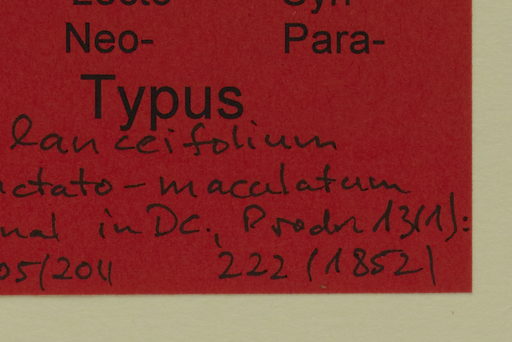 Lecto- Syn-
Neo- Para-
Typus
lanceifolium
ctato-maculatum
nal in DC., Prodr. 13(1):
05/2011 222 (1852)